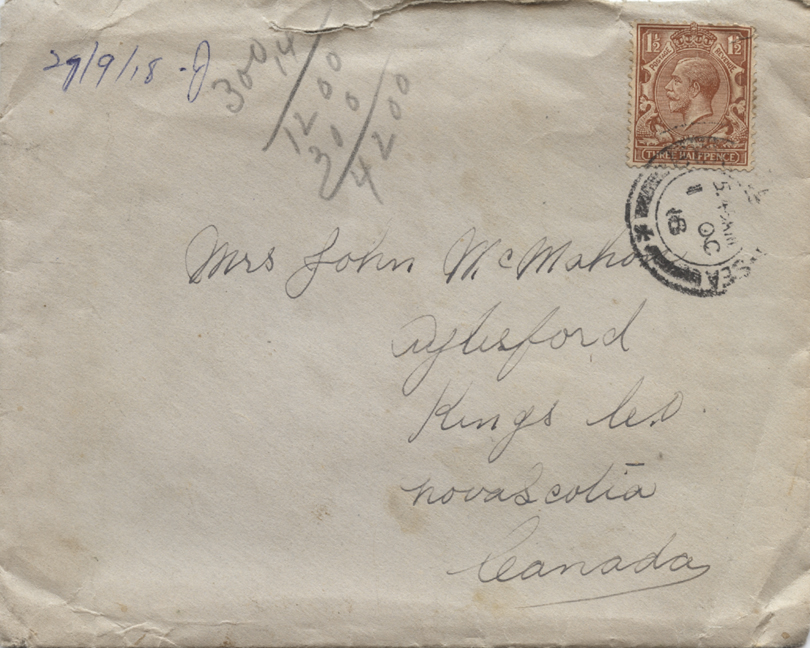 29/9/18 - J
300 14
1200
300
4200
1½ 1½
POSTAGE REVENUE
THREE HALFPENCE
5.45AM
1 OC
18
SEA
Mrs John McMahon
Aylesford
Kings Co.
novascotia
Canada